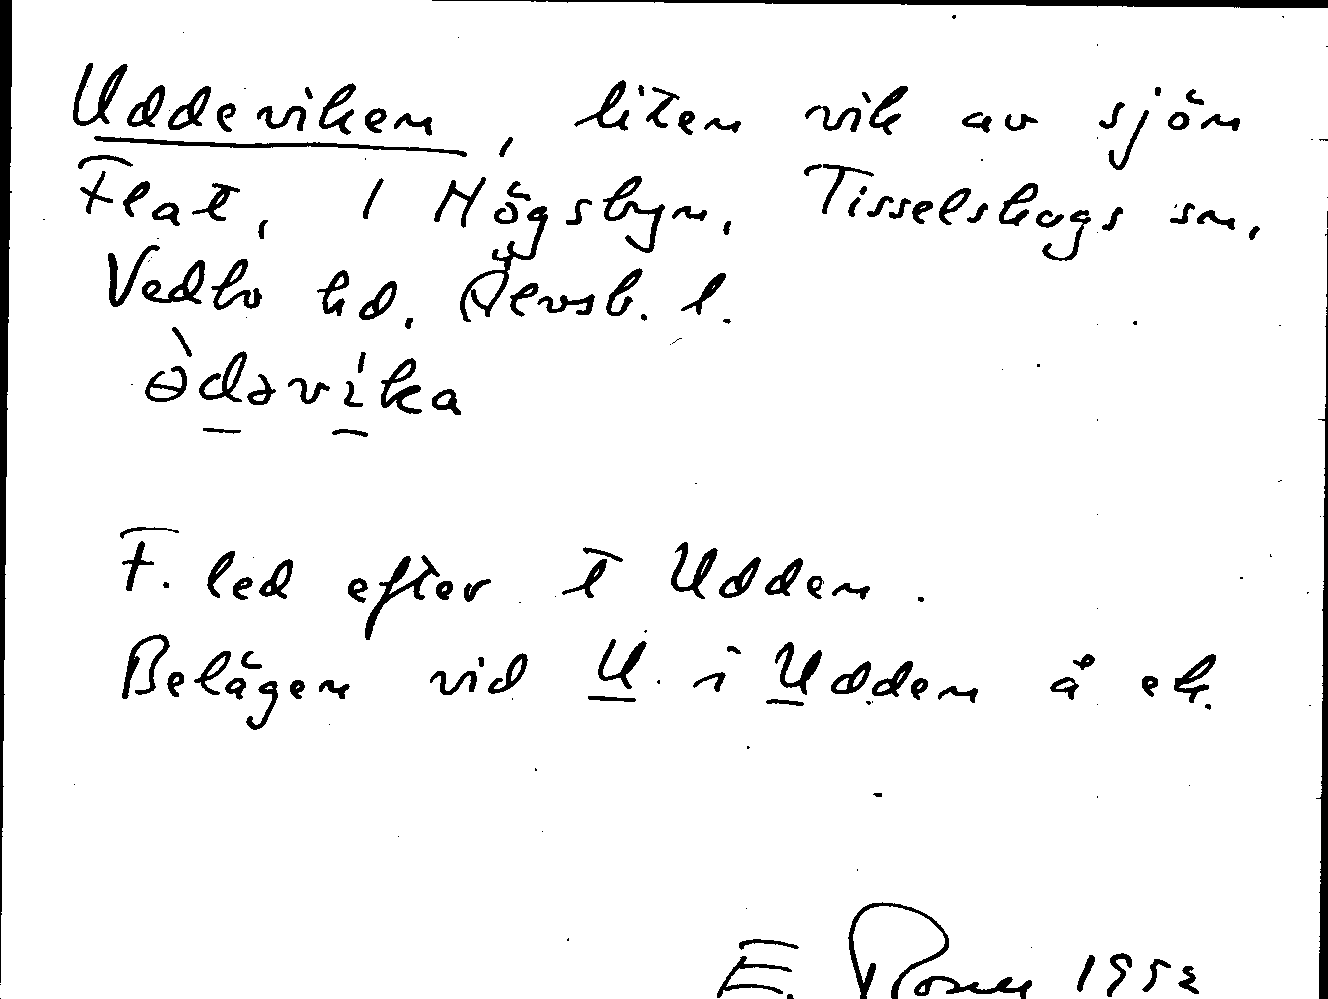 Uddeviken, liten vik av sjön
Flat, 1 Högsbyn, Tisselskogs sn,
Vedbo hd. Älvsb. l.
ɵ̀dəvíka
F. led efter t Udden.
Belägen vid U. i Udden å ek.
E. Rosell 1952